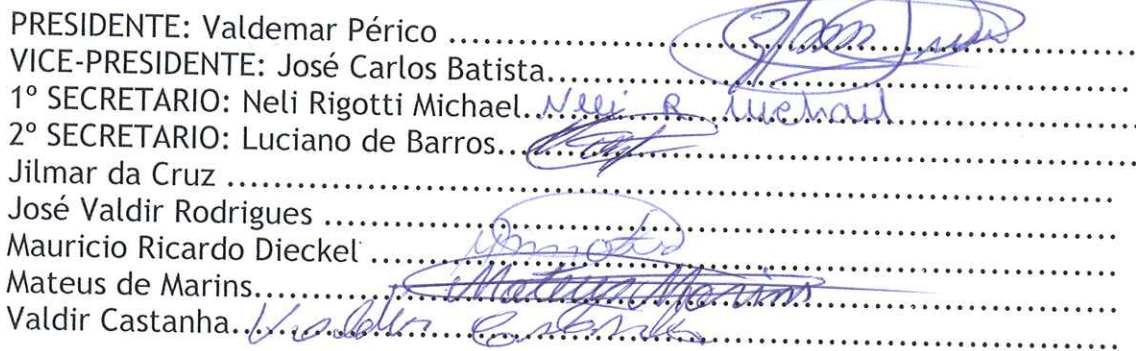 PRESIDENTE: Valdemar Périco ..........................................................
VICE-PRESIDENTE: José Carlos Batista..........................................................
1º SECRETARIO: Neli Rigotti Michael.. Neli R Michael
2º SECRETARIO: Luciano de Barros..........................................................
Jilmar da Cruz ..........................................................
José Valdir Rodrigues ..........................................................
Mauricio Ricardo Dieckel ..........................................................
Mateus de Marins.......... Mateus Marins
Valdir Castanha.. Valdir Castanha